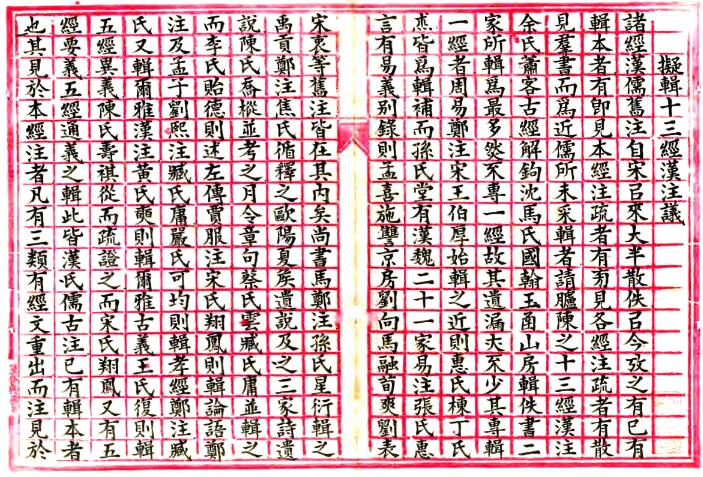 擬輯十三經漢注議
諸經漢儒舊注自宋㠯來大半散佚㠯今攷之有已有
輯本者有卽見本經注疏者有旁見各經注疏者有散
見羣書而爲近儒所未采輯者請臚陳之十三經漢注
余氏蕭客古經解鉤沈馬氏國翰玉函山房輯佚書二
家所輯爲最多然不專一經故其遺漏亦不少其專輯
一經者周易鄭注宋王伯厚始輯之近則惠氏棟丁氏
杰皆爲輯補而孫氏堂有漢魏二十一家易注張氏惠
言有易義别錄則孟喜施讐京房劉向馬融荀爽劉表
宋衷等舊注皆在其內矣尚書馬鄭注孫氏星衍輯之
禹貢鄭注焦氏循釋之歐陽夏矦遺說及之三家詩遺
說陳氏喬樅並考之月令章句蔡氏雲臧氏庸並輯之
而李氏貽德則述左傳賈服注宋氏翔鳳則輯論語鄭
注及孟子劉熙注臧氏庸嚴氏可均則輯孝經鄭注臧
氏又輯爾雅漢注黃氏奭則輯爾雅古義王氏復則輯
五經異義陳氏壽祺從而疏證之而宋氏翔鳳又有五
經要義五經通義之輯此皆漢氏儒古注已有輯本者
也其見於本經注者凡有三類有經文重出而注見於